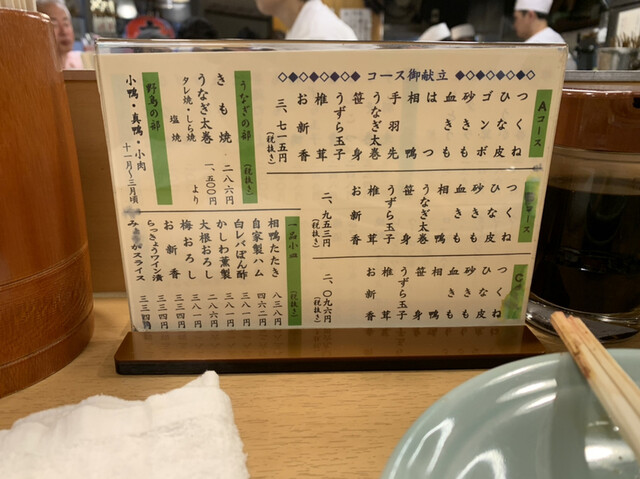 コース御献立
Aコース
つくね
ひな皮
ゴンボ
砂きも
血きも
はつ
相鴨
手羽先
うなぎ太巻
笹身
うずら玉子
椎茸
お新香
三、七一五円(税抜き)
ース
つくね
ひな皮
砂きも
血きも
相鴨
うなぎ太巻
笹身
うずら玉子
椎茸
お新香
二、九五三円(税抜き)
C
つくね
ひな皮
砂きも
血きも
相鴨
笹身
うずら玉子
椎茸
お新香
二、〇九六円(税抜き)
うなぎの部(税抜き)
きも焼 二八六円
うなぎ太巻 一、五〇〇円より
タレ焼・しら焼
塩焼
野鳥の部
小鴨・真鴨・小肉
十一月〜三月頃
一品小皿(税抜き)
相鴨たたき 八三八円
自家製ハム 四六二円
白レバぽん酢 三八一円
かしわ薫製 三八一円
大根おろし 二八六円
梅おろし 三三四円
お新香 三三四円
らっきょうワイン漬 三三四円
スライス 三三四円